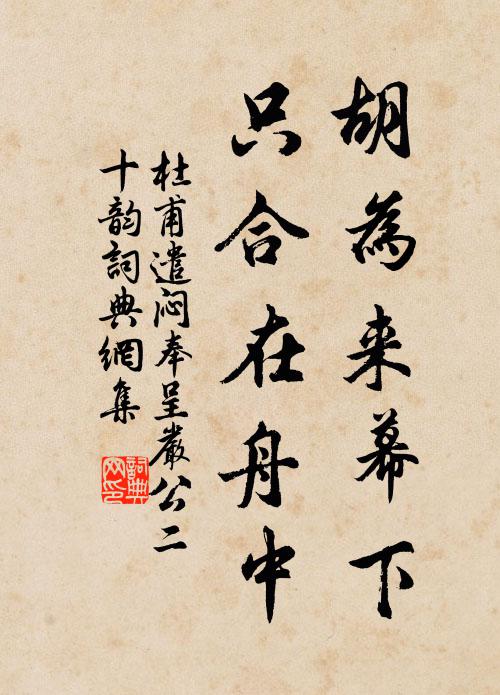 胡為来幕下
只合在舟中
杜甫遣闷奉呈嚴公二
十韵詞典網集
詞典
网印